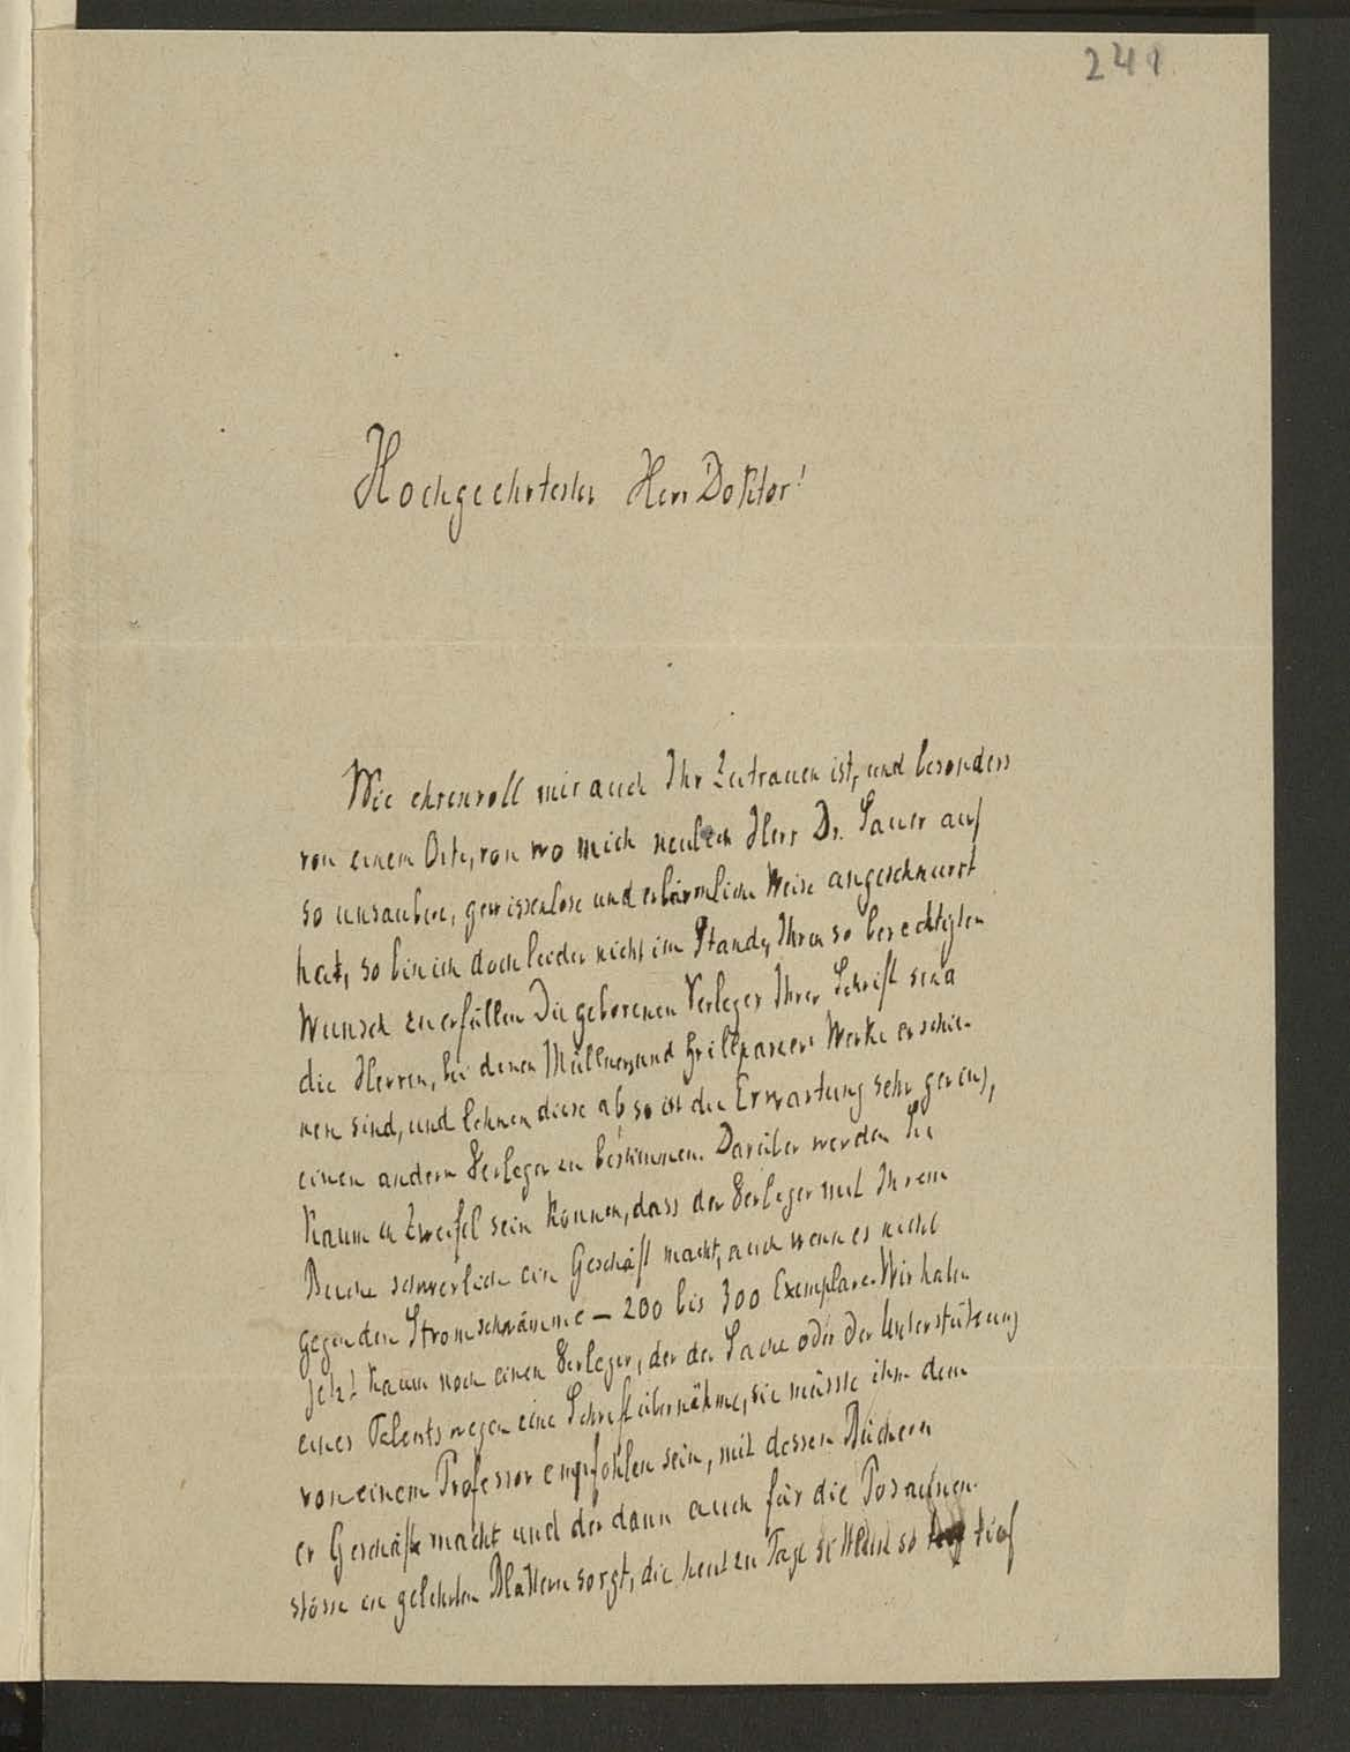 241
Hochgeehrtester Herr Doktor!
Wie ehrenvoll mir auch Ihr Zutrauen ist, und besonders
von einem Orte, von wo mich neulich Herr Dr. Sauer auf
so unsaubere, gewissenlose und erbärmliche Weise angeschnurrt
hat, so bin ich doch leider nicht im Stande, Ihren so berechtigten
Wunsch zu erfüllen. Die geborenen Verleger Ihrer Schrift sind
die Herren, bei denen Müllners und Grillparzers Werke erschie-
nen sind, und lehnen diese ab, so ist die Erwartung sehr gering,
einen andern Verleger zu bestimmen. Darüber werden Sie
kaum in Zweifel sein können, dass der Verleger mit Ihrem
Buche schwerlich ein Geschäft macht, auch wenn es nicht
gegen den Strom schwämme – 200 bis 300 Exemplare. Wir haben
jetzt kaum noch einen Verleger, der der Sache oder der Unterstützung
eines Talents wegen eine Schrift übernähme, sie müsste ihm denn
von einem Professor empfohlen sein, mit dessen Büchern
er Geschäfte macht und der dann auch für die Posaunen-
stösse in gelehrten Blättern sorgt, die heut zu Tage so tief